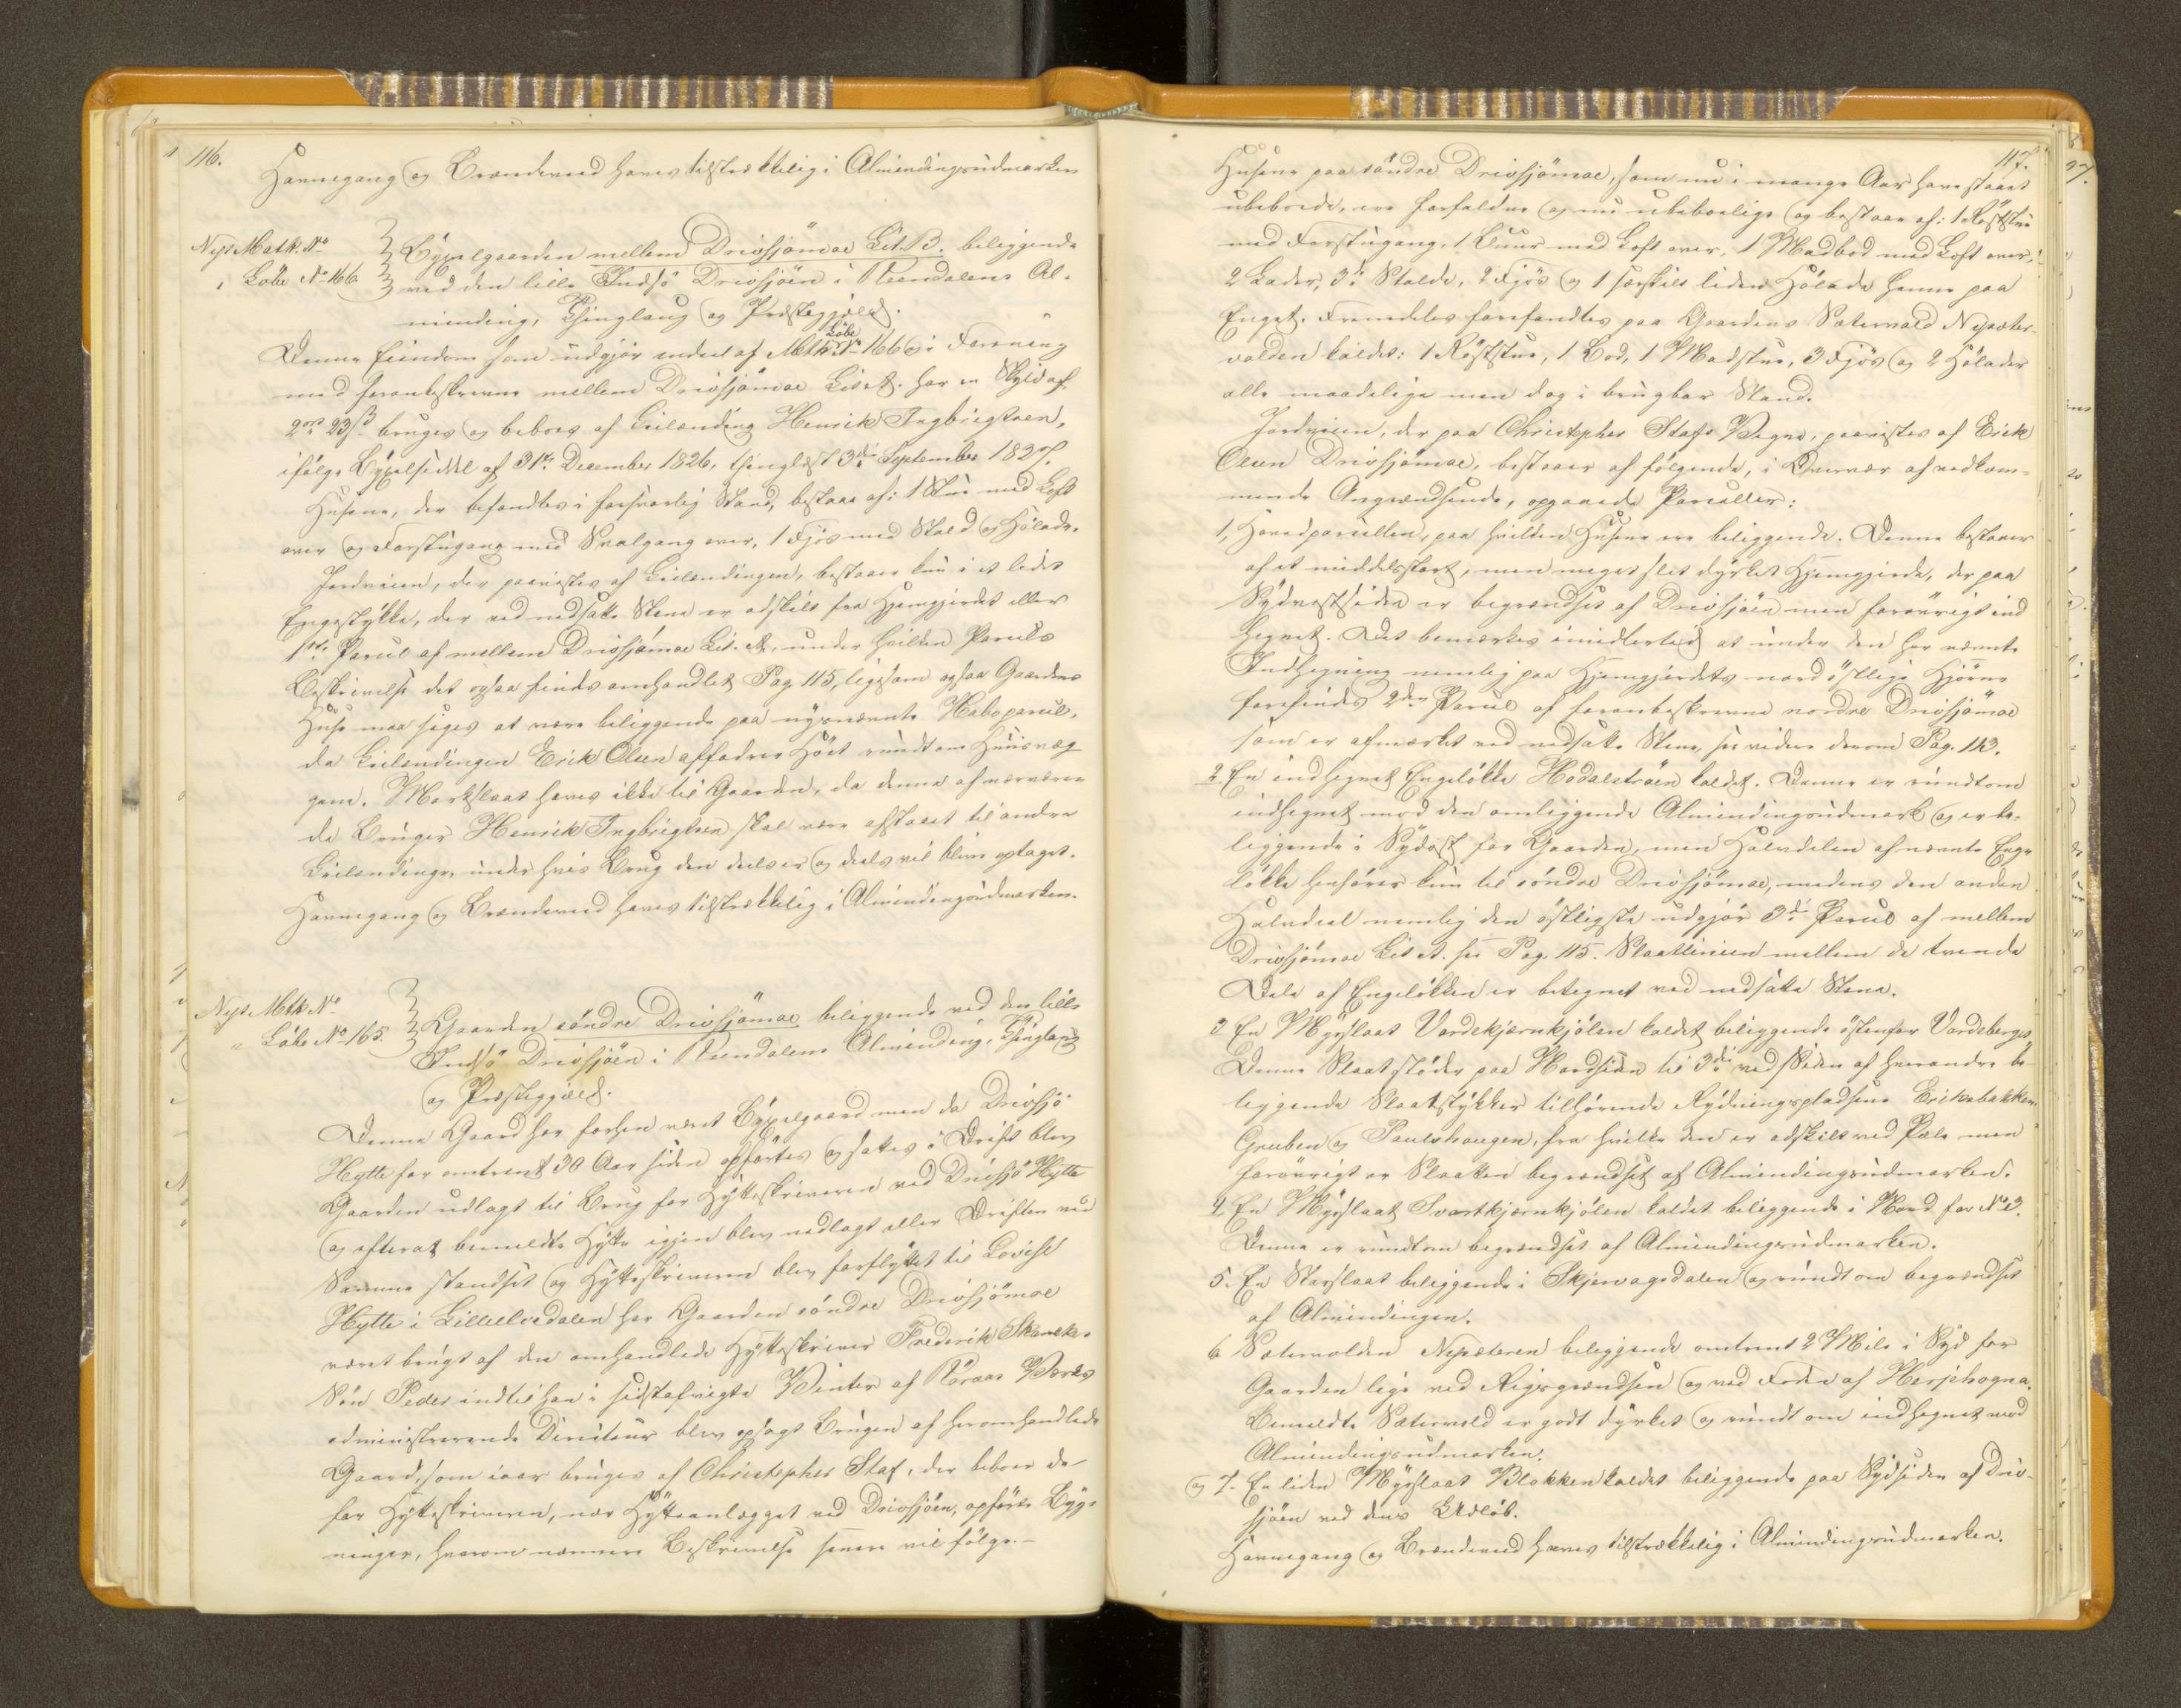 116.
Havnegang og Brændeved haves tilstrækkelig i Almindingsudmarken
Nye Matk. No
" Löbe No 166.
Bÿxelgaarden mellem Drivsjömoe Lit. B. beliggende
ved den lille Indsö Drivsjöen i Reendalens Al-
minding, Thinglaug og Præstegjæld.
Denne Eiendom som udgjör endeel af Matk: Löbe No 166 i Forening
med foranbeskrevne mellem Drivsjömoe Lit A. har en Skyld af
23 ß bruges og beboes af Leilænding Henrik Ingbrigtsen,
ifölge Bÿxelseddel af 31te December 1826, thinglæst 3die September
Husene, der befandtes i forsvarlig Stand, bestaae af: 1 Stue med Loft
over og Forstugang med Svalgang over, 1 Fjös med Stald og Hölade.
Jordveien, der paavistes af Leilændingen, bestaaer kun i et lidet
Engestÿkke, der ved nedsatte Stene er adskilt fra Hjemgjerdet eller
1ste Parcel af mellem Drivsjömoe Lit. A, under hvilken Parcels
Beskrivelse det ogsaa findes omhandlet Pag. 115, ligesom ogsaa Gaardens
Huse maa siges at være beliggende paa nÿsnævnte Naboparcel,
da Leilændingen Erik Olsen affodrer Höet rundt om Huusvæg
gene. Markslaat haves ikke til Gaarden, da denne af nærværen
de Bruger Henrik Ingbrigtsen skal være afstaaet til andre
Leilændinge, under hvis Brug den deels er og deels vil blive optaget.
Havnegang og Brændeved haves tilstrækkelig i Almindingsudmarken.
Nye Mtk. No
" Löbe No 165.
Gaarden söndre Drivsjömoe beliggende ved den lille
Indsö Drivsjöen i Reendalens Alminding, Thinglaug
og Præstegjæld.
Denne Gaard har forhen været Bÿxelgaard men da Drivsjö
Hytte for omtrent 30 Aar siden opförtes og sattes i Drift blev
Gaarden udlagt til Brug for Hÿtteskriveren ved Drivsjö Hÿtte
og efterat bemeldte Hÿtte igjen blev nedlagt eller Driften ved
Samme standset og Hÿtteskriveren blev forflÿttet til Lovise
Hytte i Lilleelvedalen har Gaarden söndre Drivsjömoe
været brugt af den omhandlede Hÿtteskriver Frederik Skanckes
Sön Peder indtil han i sidstafvigte Vinter af Röraas Værks
administrerende Directeur blev opsagt Brugen af heromhandlede
Gaard, som iaar bruges af Christopher Staf, der beboer de
for Hÿtteskriveren, nær Hÿtteanlægget ved Drivsjöen, opförte Bÿg-
ninger, hvorom nærmere Beskrivelse senere vil fölge.-
117.
Husene paa söndre Drivsjömoe, som nu i mange Aar have staaet
ubeboede, ere forfaldne og nu ubeboelige og bestaae af: 1 Röststue
med Forstugang, 1 Buur med Loft over, 1 Madbod med Loft over,
2 Lader, 3de Stalde, 2 Fjös og 1 særskilt liden Hölade henne paa
Enget. Fremdeles forefandtes paa Gaardens Sætervold Nysæter-
volden kaldet: 1 Röststue, 1 Bod, 1 Madstue, 3 Fjös og 2 Hölader
alle maadelige men dog i brugbar Stand.
Jordveien, der paa Christopher Stafs Vegne, paavistes af Erik
Olsen Drivsjömoe, bestaaer af fölgende, i Overvær af vedkom-
mende Angrændsende, opgaaede Parceller:
1, Hovedparcellen, paa hvilken Husene ere beliggende. Denne bestaaer
af et middelstort, men meget slet dÿrket Hjemgjerde, der paa
Sÿdvestsiden er begrændset af Drivsjöen men forövrigt ind
hegnet. Det bemærkes imidlertid at under den her nævnte
Indhegning nemlig paa Hjemgjerdets nordöstlige Hjörne
forefindes 2den Parcel af foranbeskrevne nordre Drivsjömoe
som er afmærket ved nedsatte Stene, see videre derom Pag. 113.
2 En indhegnet Engelökke Hodalströen kaldet. Denne er rundtom
indhegnet mod den omliggende Almindingsudmark og er be-
liggende i Sÿdost for Gaarden, men Halvdelen af nævnte Enge
lökke henföres kun til söndre Drivsjömoe, medens den anden
Halvdeel nemlig den östligste udgjör 3die Parcel af mellem
Drivsjömoe Lit A. see Pag. 115. Slaatlinien mellem de tvende
Dele af Engelökken er betegnet ved nedsatte Stene.
3 En Mÿrslaat Vardekjærnkjölen kaldet beliggende östenfor Vardeberget
Denne Slaat stöder paa Nordsiden til 3de ved Siden af hverandre be-
liggende Slaatstÿkker tilhörende Rÿdningspladsene Eriksbakken,
Gruben og Paulshaugen, fra hvilke den er adskilt ved Pæle men
forövrigt er Slaatten begrændset af Almindingsudmarken.
4 En Mÿrslaat Svartkjærnkjölen kaldet beliggende i Nord for No 3.
Denne er rundtom begrændset af Almindingsudmarken.
5. En Starslaat beliggende i Skjervagsdalen og rundt om begrændset
af Almindingen.
6 Sætervolden Nysæteren beliggende omtrent 2 Mile i Sÿd for
Gaarden lige ved Rigsgrændsen og ved Foden af Hersjehogna.
Bemeldte Sætervold er godt dÿrket og rundt om indhegnet mod
Almindingsudmarken.
og 7. En liden Mÿrslaat Blokken kaldet beliggende paa Sÿdsiden af Driv-
sjöen ved dens Udlöb.
Havnegang og Brændeved haves tilstrækkelig i Almindingsudmarken.